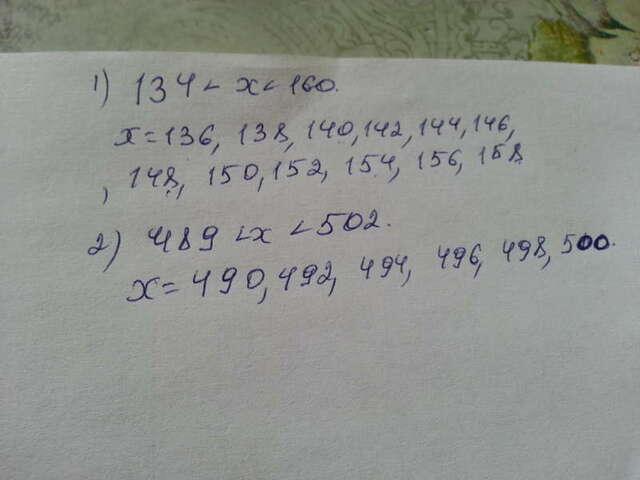 1) 134 < x < 160.
x = 136, 138, 140, 142, 144, 146,
, 148, 150, 152, 154, 156, 158
2) 489 < x < 502.
x = 490, 492, 494, 496, 498, 500.